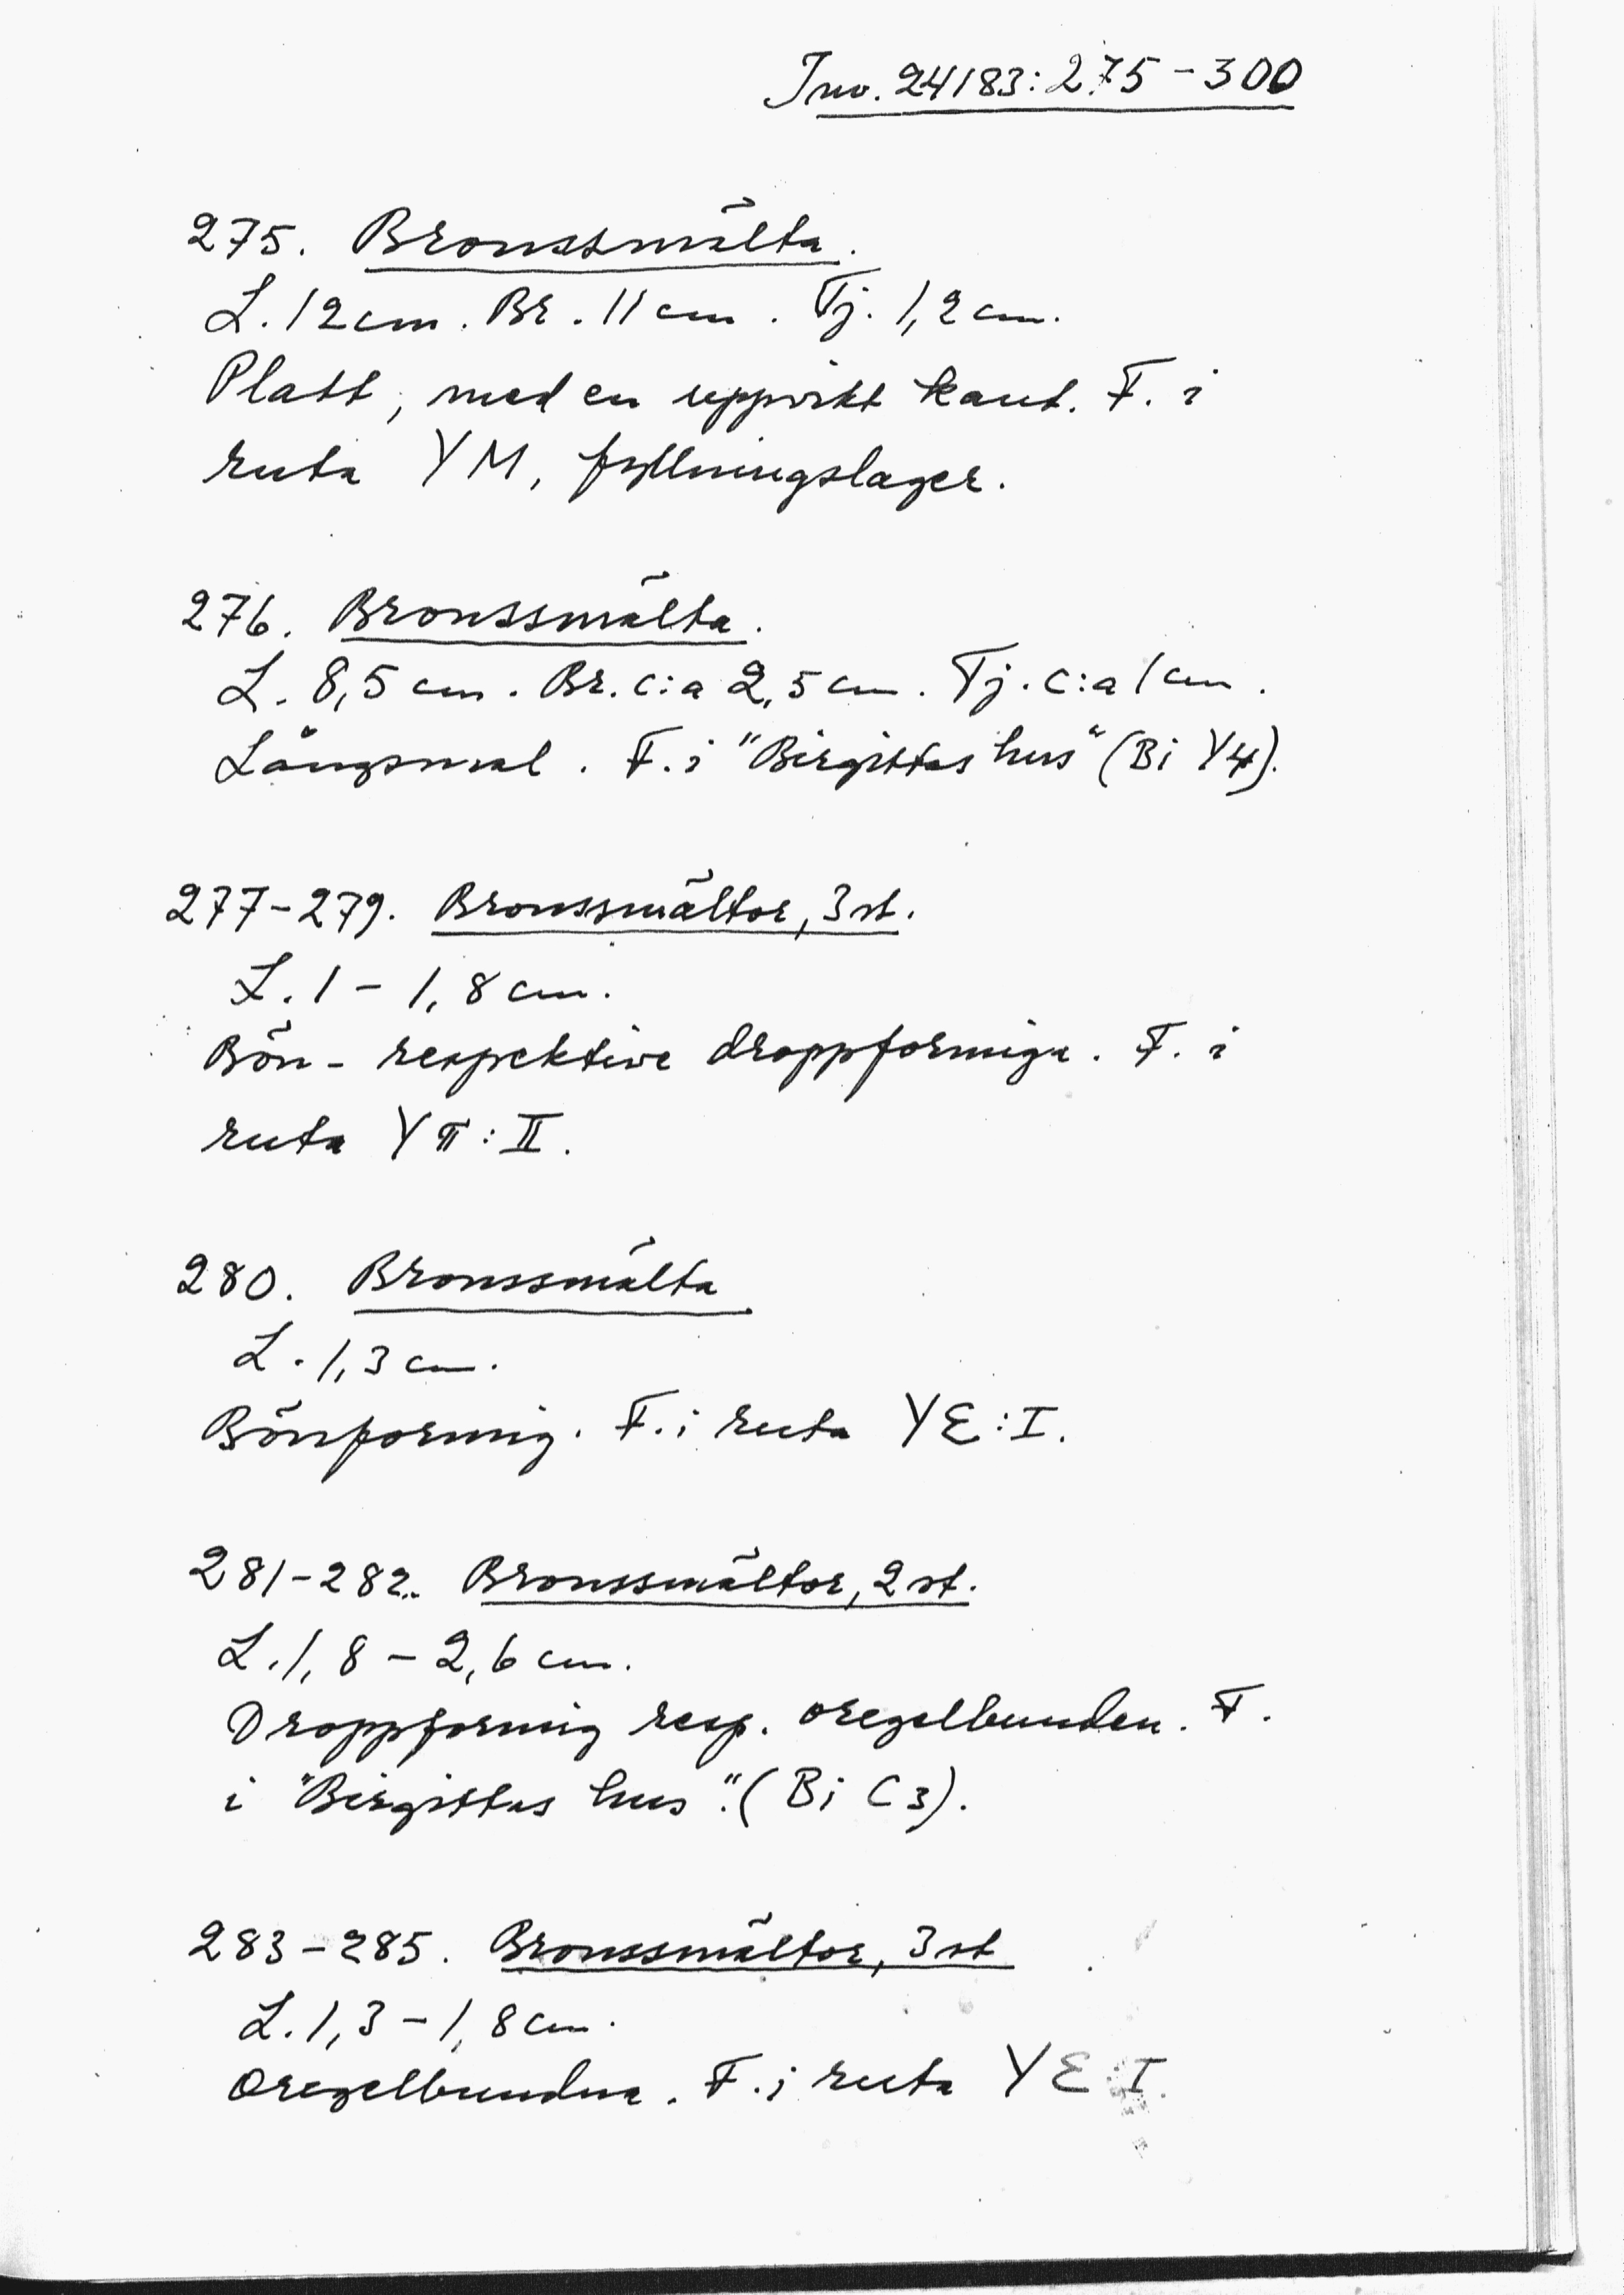 Inv. 24183:275-300
275. Bronssmälta.
L. 12 cm. Br. 11 cm. Tj. 1,2 cm.
Platt, med en uppvikt kant. F. i
ruta YM, fyllningslager.
276. Bronssmälta.
L. 8,5 cm. Br. c:a 2,5 cm. Tj. c:a 1 cm.
Långsmal. F. i "Birgittas hus" (Bi Y4).
277-279. Bronssmältor, 3 st.
L. 1 - 1,8 cm.
Bön- respektive droppformiga. F. i
ruta Y π : II.
280. Bronssmälta
L. 1,3 cm.
Bönformig. F. i ruta YƐ:I.
281-282. Bronssmältor, 2 st.
L. 1,8 - 2,6 cm.
Droppformig resp. oregelbunden. F.
i "Birgittas hus". (Bi C3).
283-285. Bronssmältor, 3 st
L. 1,3 - 1,8 cm.
Oregelbundna. F. i ruta YƐ:I.